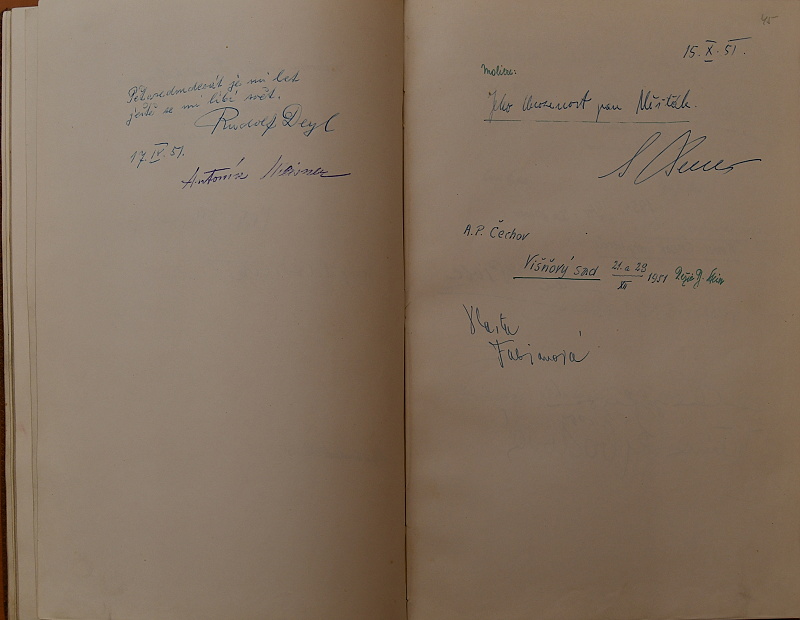 Pětasedmdesát je mi let
ještě se mi líbí svět.
Rudolf Deyl
17. IV. 51.
Antonín
45
15. X. 51.
Moliere:
Jeho Urozenost pan Měšťák.
A.P. Čechov
Višňový sad 21. a 29 XII 1951
Vlasta
Fabianová